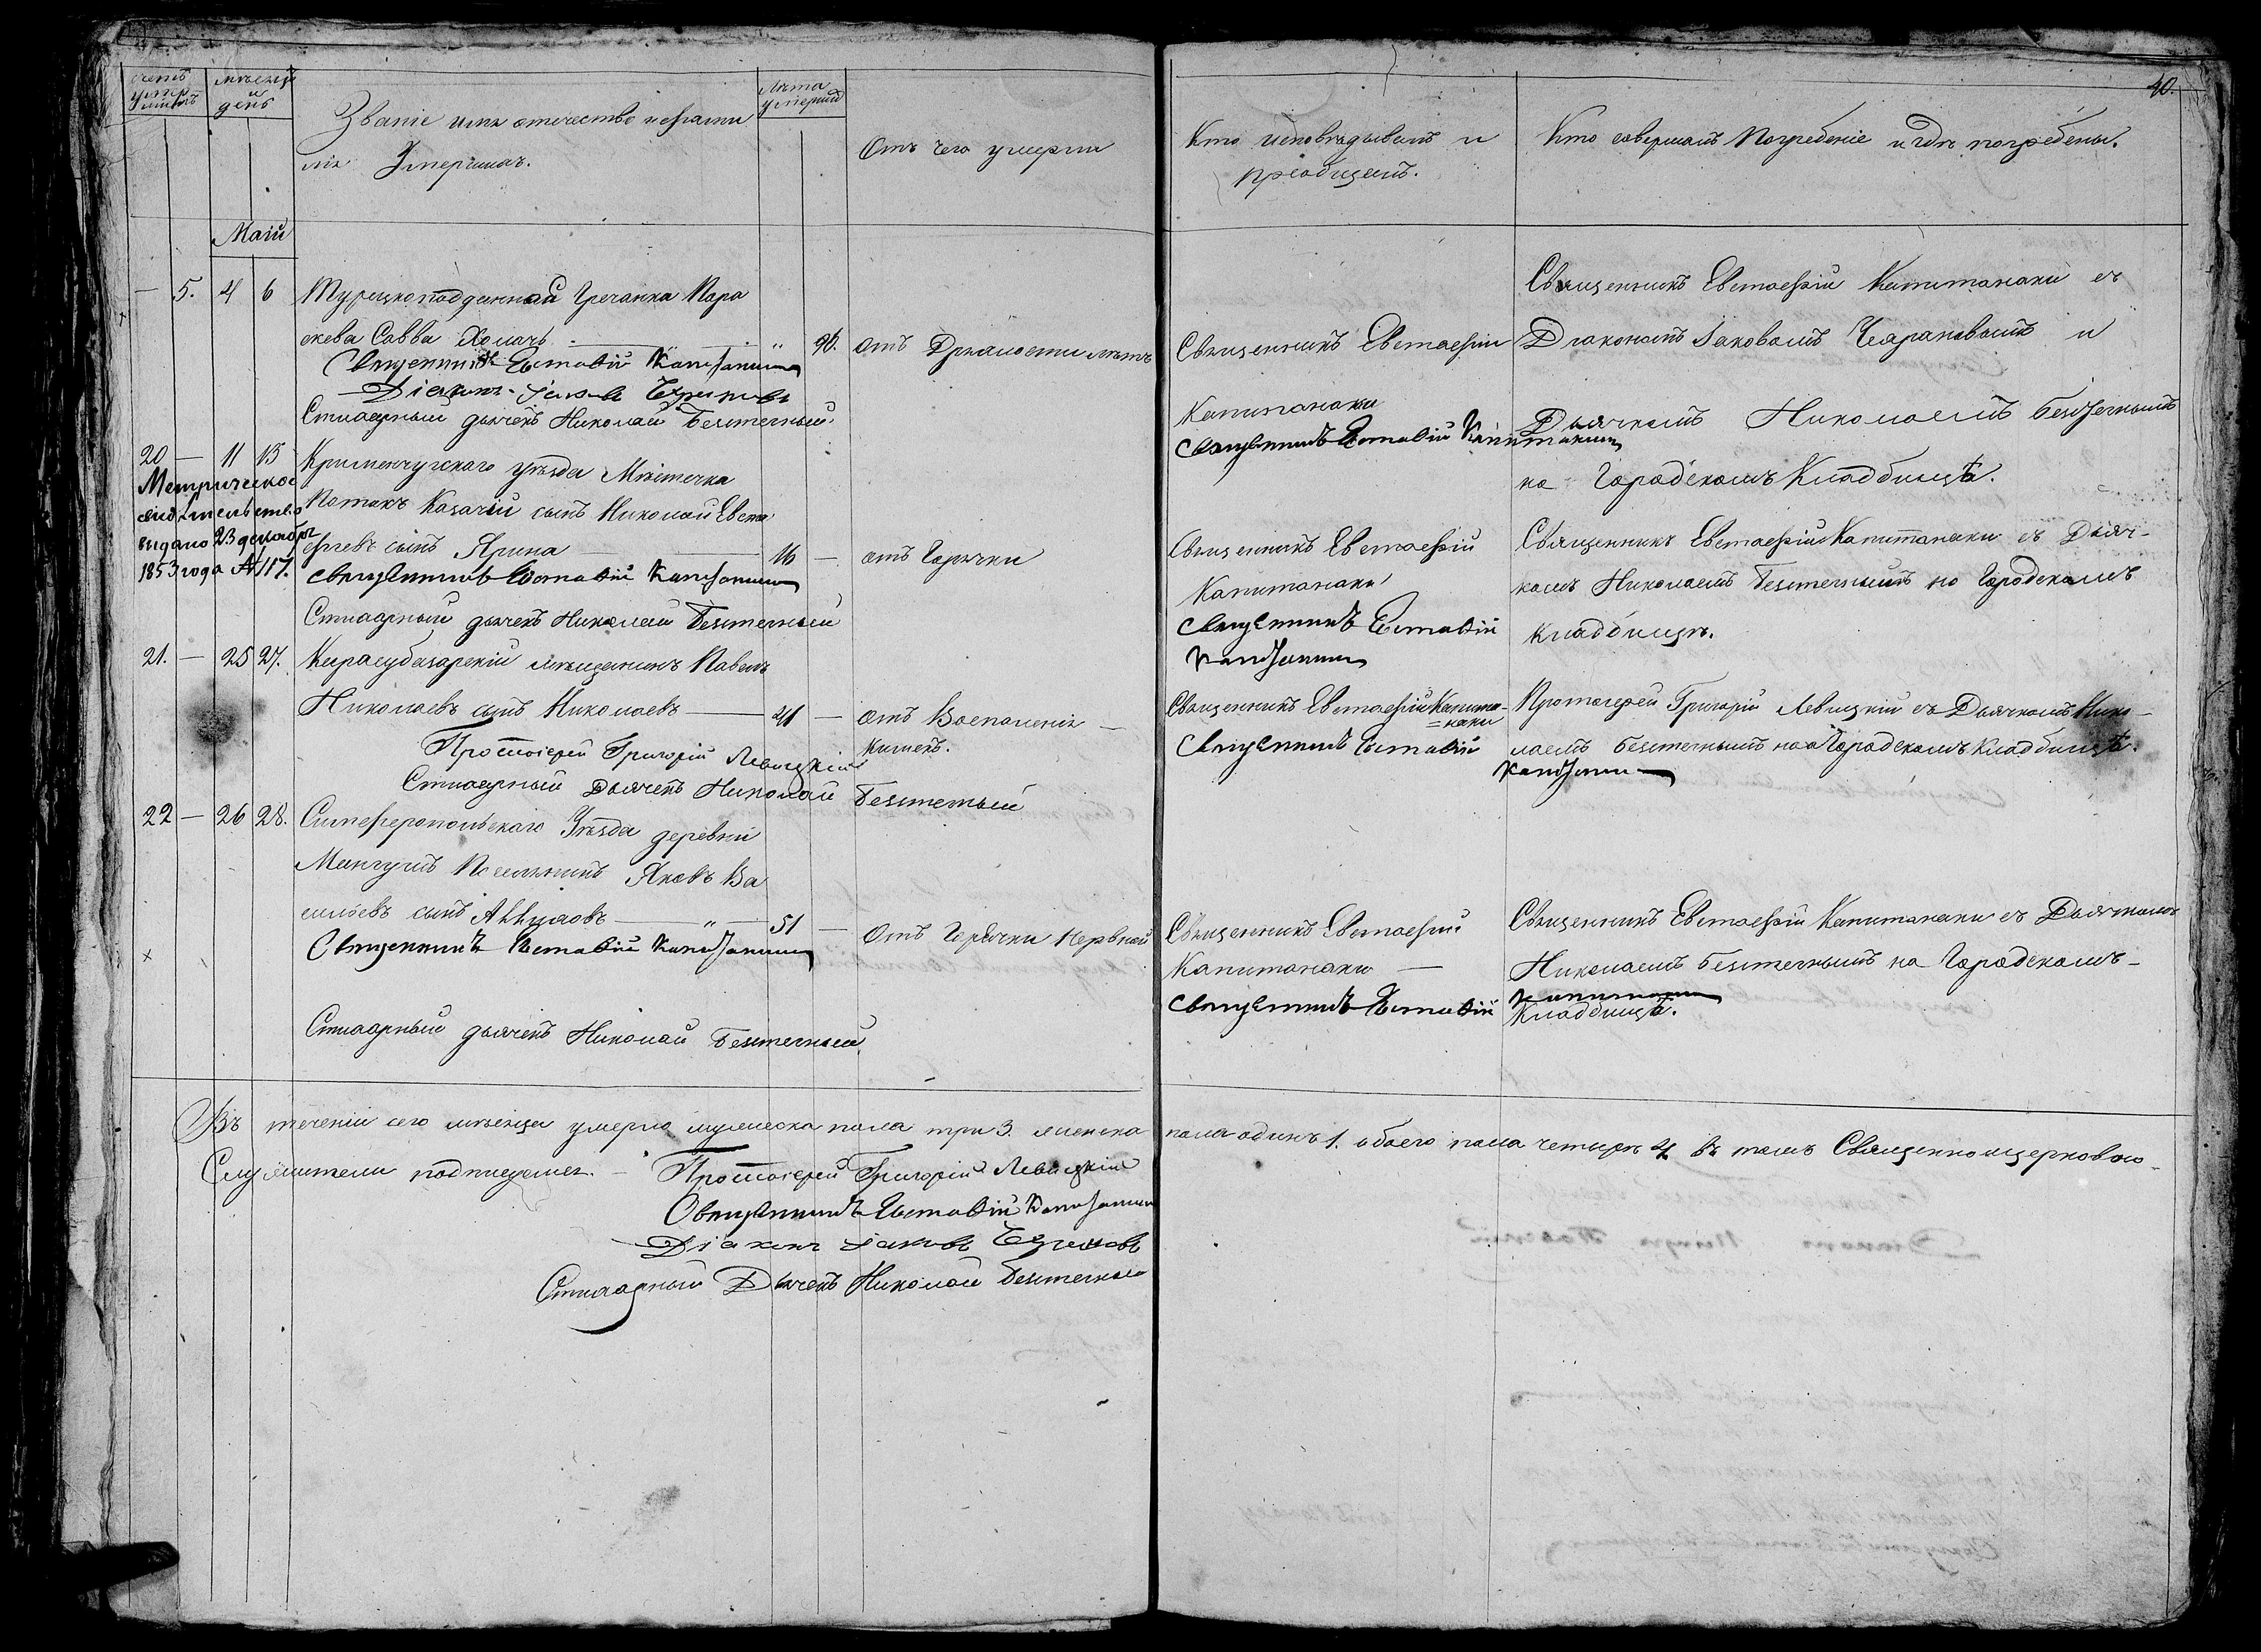 40.
счетъ умершихъ
мѣсяцъ и день
Званіе имя отечество и фами
лія Умершихъ.
Лѣта умершихъ
Отъ чего умерли
Кто исповѣдывалъ и
пріобщалъ.
Кто совершалъ Погребеніе и гдѣ погребены.
Маій
— 5. 4 6 Турецкоподданная Гречанка Пара
скева Савва Хомачь 90. отъ Дряхлости лѣтъ
Священникъ Евстафій Капитанаки
Діаконъ Іаковъ Чарановъ
Стихарный дьячекъ Николай Безтечный.
Священникъ Евстафій
Капитанаки
Священникъ Евстафій Капитанаки
Священникъ Евстафій Капитанаки съ
Діакономъ Іаковомъ Чарановымъ и
Дьячкомъ Николаемъ Безтечнымъ
на Городскомъ Кладбищѣ.
20 — 11 13 Кременчугскаго уѣзда Мѣстечка
Потокъ Казачій сынъ Николай Евста
фіевъ сынъ Ярина 16 — отъ Горячки
Метрическое
свидѣтельство
выдано 23 декабря
1853 года № 117.
Священникъ Евстафій Капитанаки
Стихарный дьячекъ Николай Безтечный
Священникъ Евстафій
Капитанаки
Священникъ Евстафій
Капитанаки
Священникъ Евстафій Капитанаки съ Дьяч-
комъ Николаемъ Безтечнымъ на Городскомъ
Кладбищѣ.
21. — 25 27. Карасубазарскій мѣщанинъ Павелъ
Николаевъ сынъ Николаевъ 41 — отъ Воспаленія
кишекъ.
Протоіерей Григорій Левицкій
Стихарный Дьячекъ Николай Безтечный
Священникъ Евстафій Капита-
=наки
Священникъ Евстафій
Капитанаки
Протоіерей Григорій Левицкій съ Дьячкомъ Нико-
лаемъ Безтечнымъ на Городскомъ Кладбищѣ.
22 — 26 28. Симферопольскаго Уѣзда деревни
Мангушъ Поселянинъ Яковъ Ва
сильевъ сынъ 51 — Отъ Горячки Нервной
Священникъ Евстафій Капитанаки
Стихарный дьячекъ Николай Безтечный.
Священникъ Евстафій
Капитанаки —
Священникъ Евстафій
Капитанаки
Священникъ Евстафій Капитанаки съ Дьячкомъ
Николаемъ Безтечнымъ на Городскомъ-
Кладбищѣ.
Въ теченіи сего мѣсяца умерло мужеска пола три 3. женска пола одинъ 1. обоего пола четыре 4 въ томъ Священноцерковно-
Служители подписуемся. — Протоіерей Григорій Левицкій
Священникъ Евстафій Капитанаки
Діаконъ Іаковъ Чарановъ
Стихарный Дьячекъ Николай Безтечный